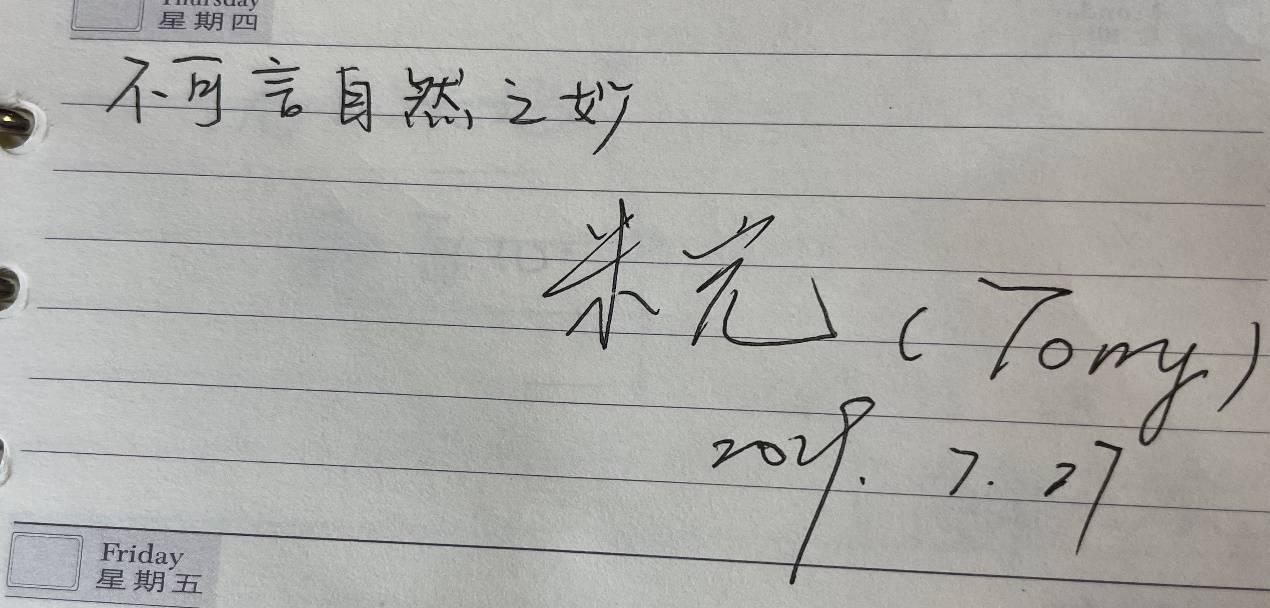 Thursday
星期四
不可言自然之妙
米元 (Tomy)
2029. 7. 27
Friday
星期五